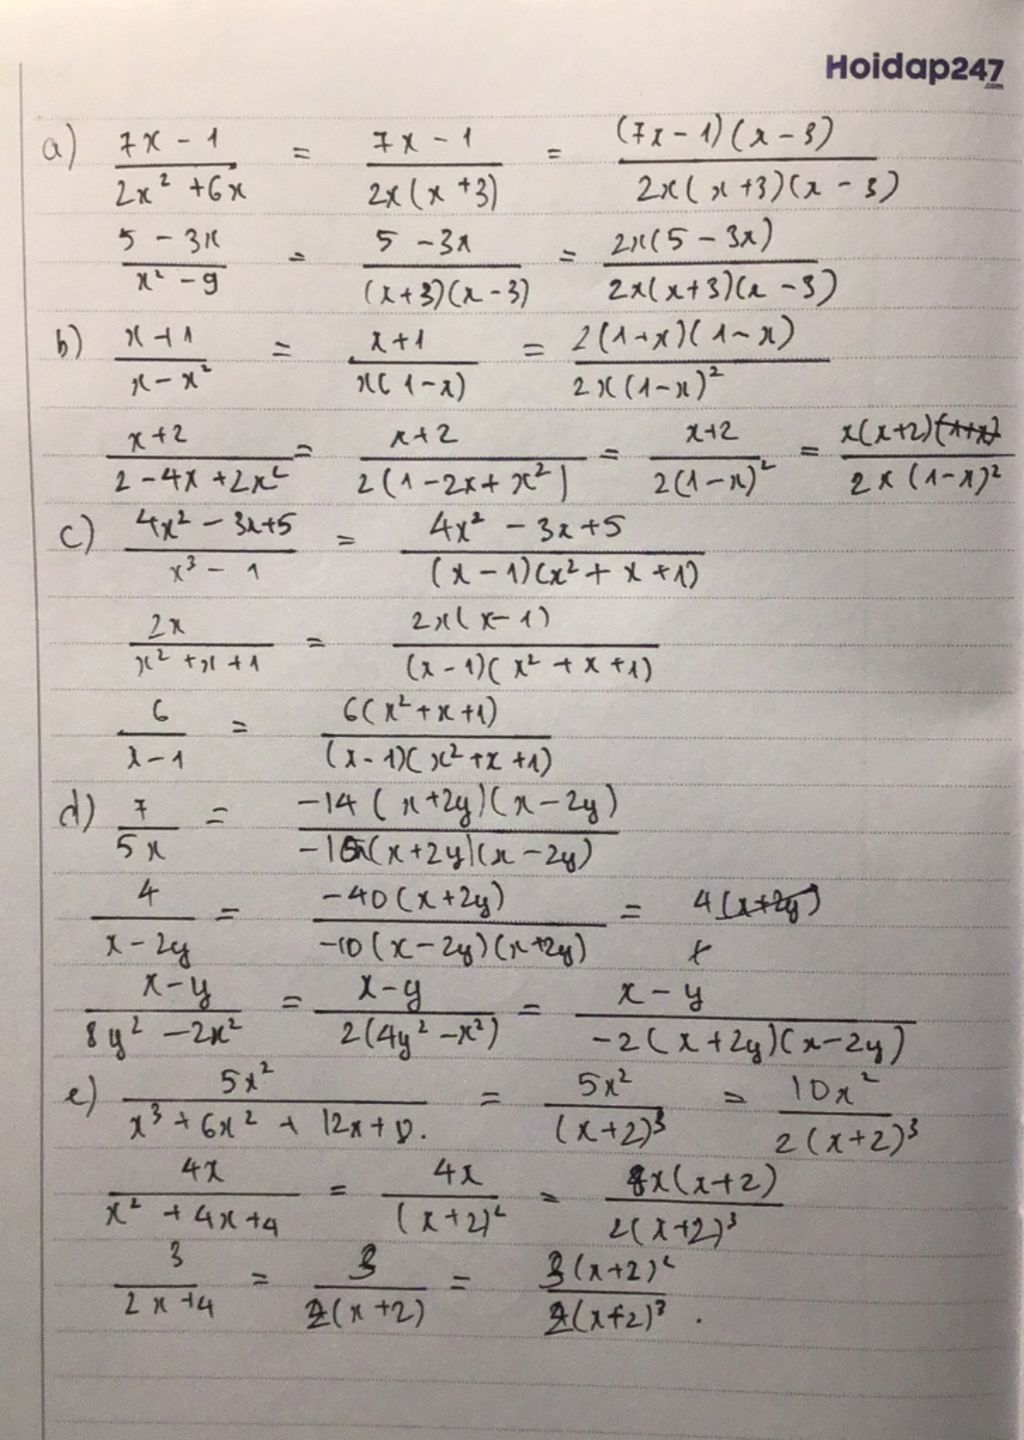 Hoidap247
.com
a) (7x - 1)/(2x² + 6x) = (7x - 1)/(2x(x + 3)) = ((7x - 1)(x - 3))/(2x(x + 3)(x - 3))
(5 - 3x)/(x² - 9) = (5 - 3x)/((x + 3)(x - 3)) = (2x(5 - 3x))/(2x(x + 3)(x - 3))
b) (x + 1)/(x - x²) = (x + 1)/(x(1 - x)) = (2(1 + x)(1 - x))/(2x(1 - x)²)
(x + 2)/(2 - 4x + 2x²) = (x + 2)/(2(1 - 2x + x²)) = (x + 2)/(2(1 - x)²) = (x(x + 2))/(2x(1 - x)²)
c) (4x² - 3x + 5)/(x³ - 1) = (4x² - 3x + 5)/((x - 1)(x² + x + 1))
(2x)/(x² + x + 1) = (2x(x - 1))/((x - 1)(x² + x + 1))
6/(x - 1) = (6(x² + x + 1))/((x - 1)(x² + x + 1))
d) 7/(5x) = (-14(x + 2y)(x - 2y))/(-10x(x + 2y)(x - 2y))
4/(x - 2y) = (-40(x + 2y))/(-10(x - 2y)(x + 2y)) = 4(x + 2y)/x
(x - y)/(8y² - 2x²) = (x - y)/(2(4y² - x²)) = (x - y)/(-2(x + 2y)(x - 2y))
e) (5x²)/(x³ + 6x² + 12x + 8) = (5x²)/((x + 2)³) = (10x²)/(2(x + 2)³)
(4x)/(x² + 4x + 4) = (4x)/((x + 2)²) = (8x(x + 2))/(2(x + 2)³)
3/(2x + 4) = 3/(2(x + 2)) = (3(x + 2)²)/(2(x + 2)³).